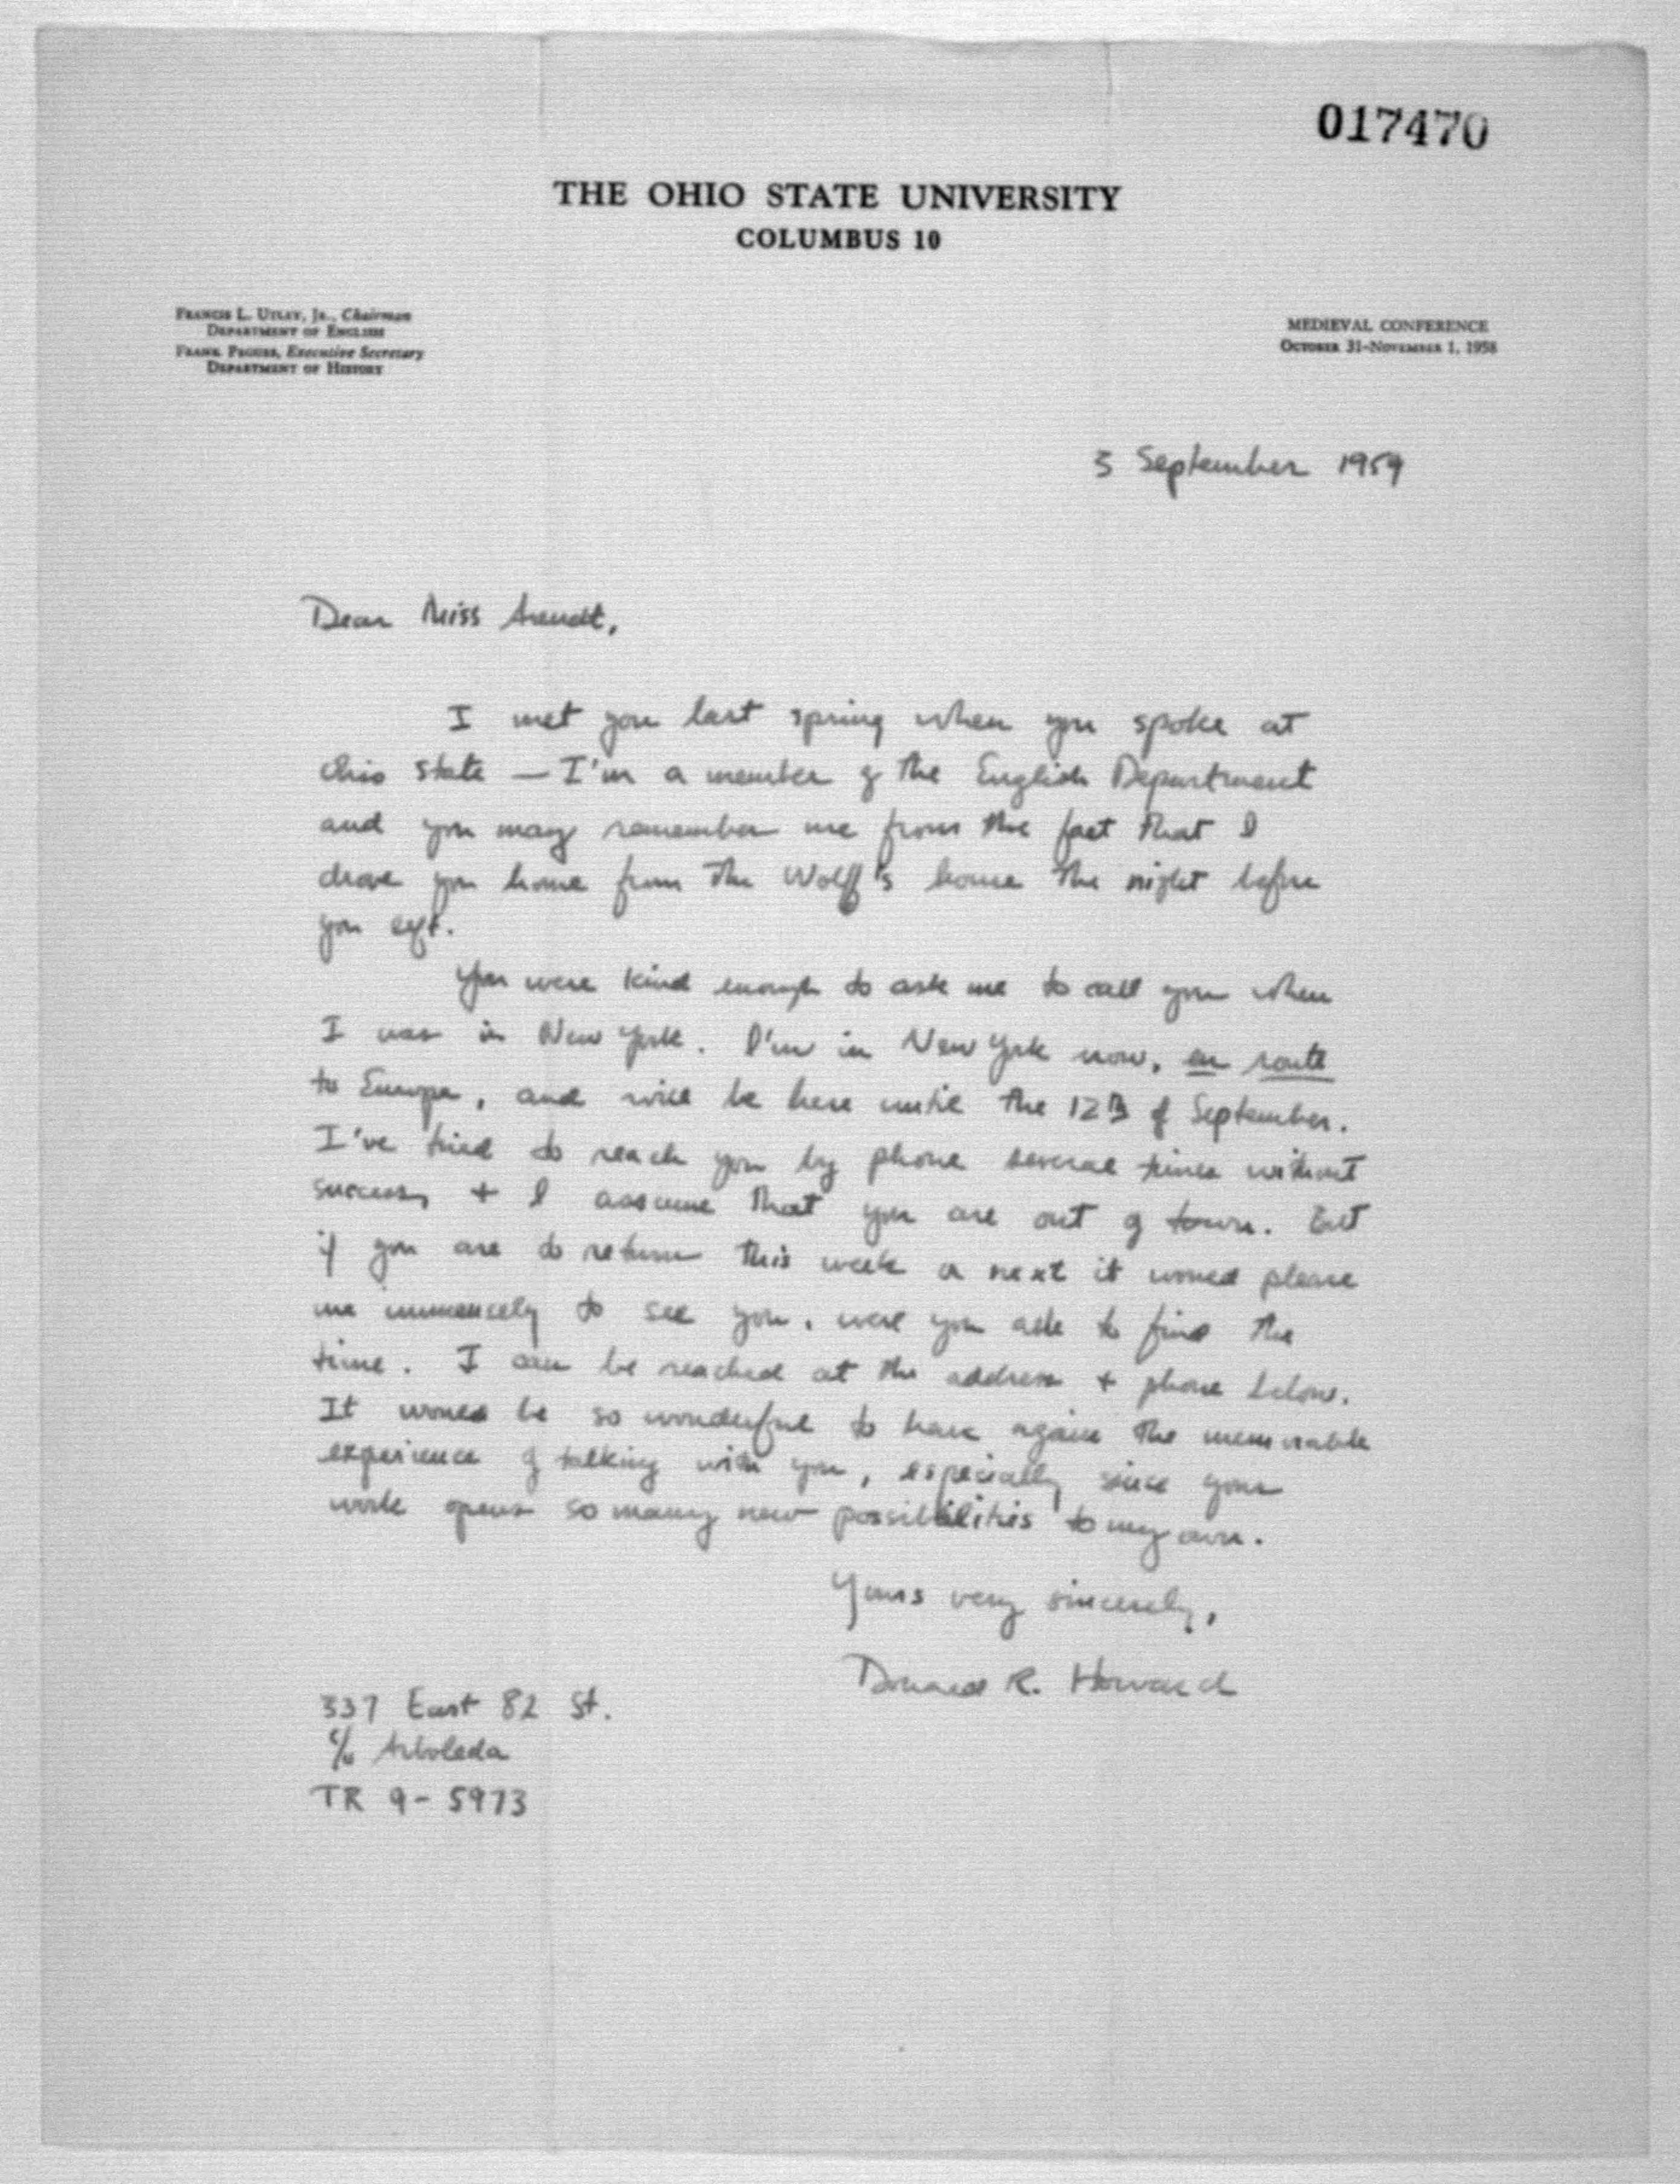 017470
THE OHIO STATE UNIVERSITY
COLUMBUS 10
FRANCIS L. UTLEY, JR., Chairman
DEPARTMENT OF ENGLISH
FRANK PEGUES, Executive Secretary
DEPARTMENT OF HISTORY
MEDIEVAL CONFERENCE
OCTOBER 31-NOVEMBER 1, 1958
3 September 1959
Dear Miss Arendt,
I met you last spring when you spoke at
Ohio State — I'm a member of the English Department
and you may remember me from the fact that I
drove you home from the Wolff's house the night before
you left.
You were kind enough to ask me to call you when
I was in New York. I'm in New York now, en route
to Europe, and will be here until the 12th of September.
I've tried to reach you by phone several times without
success, + I assume that you are out of town. But
if you are to return this week or next it would please
me immensely to see you, were you able to find the
time. I can be reached at the address + phone below.
It would be so wonderful to have again the memorable
experience of talking with you, especially since your
work opens so many new possibilities to my own.
Yours very sincerely,
Donald R. Howard
337 East 82 St.
c/o Arboleda
TR 9-5973